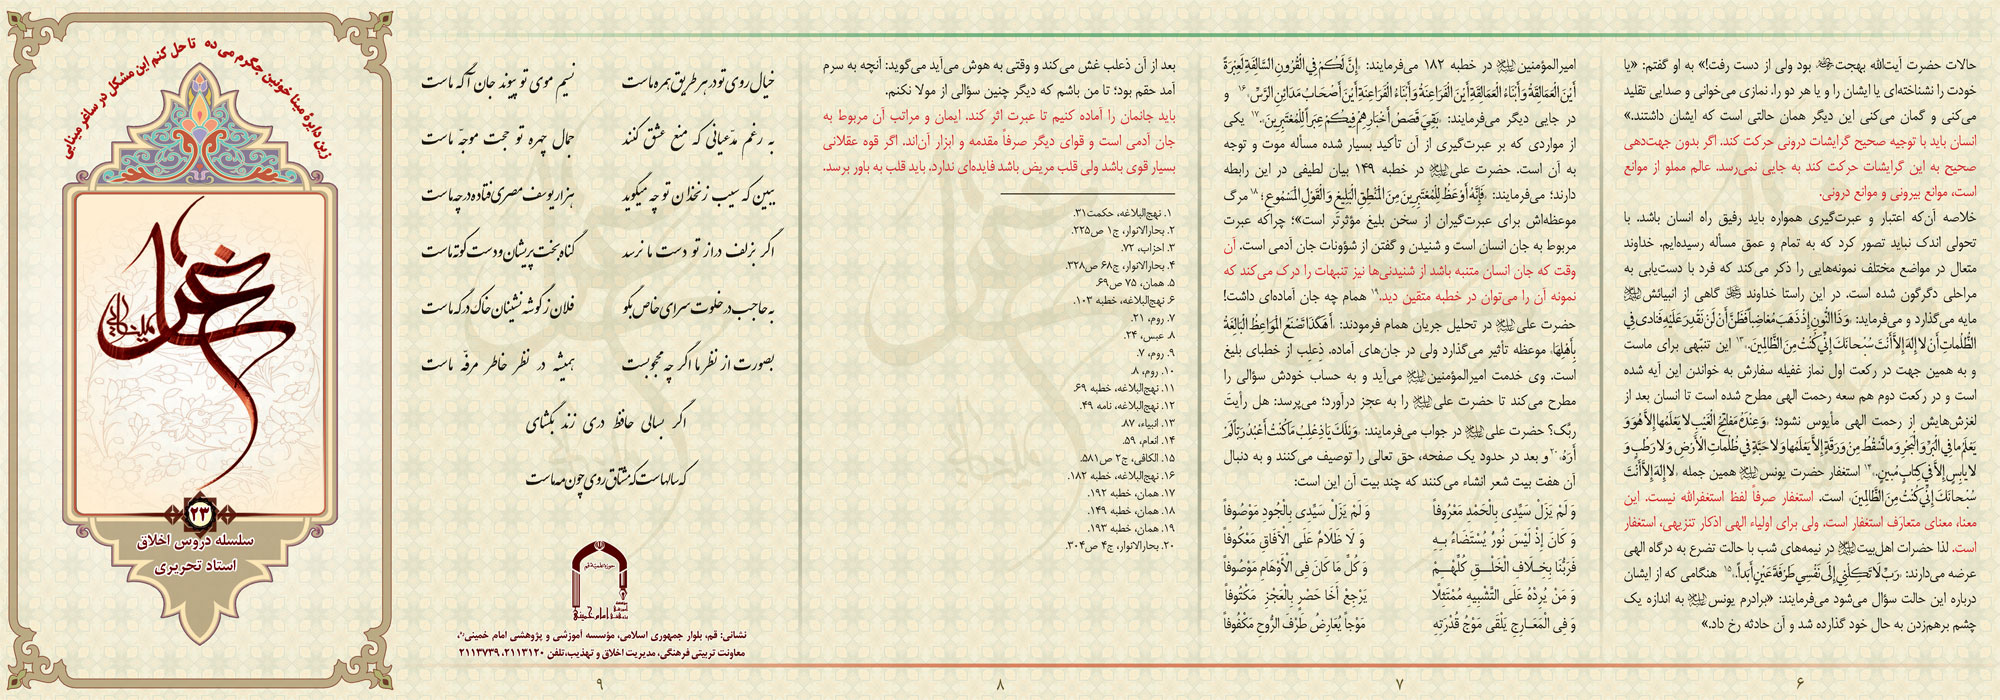 حالات حضرت آیت‌الله بهجت بود ولی از دست رفت!» به او گفتم: «یا
خودت را نشناخته‌ای یا ایشان را و یا هر دو را. نمازی می‌خوانی و صدایی تقلید
می‌کنی و گمان می‌کنی این دیگر همان حالتی است که ایشان داشتند.»
انسان باید با توجیه صحیح گرایشات درونی حرکت کند. اگر بدون جهت‌دهی
صحیح به این گرایشات حرکت کند به جایی نمی‌رسد. عالم مملو از موانع
است، موانع بیرونی و موانع درونی.
خلاصه آن‌که اعتبار و عبرت‌گیری همواره باید رفیق راه انسان باشد. با
تحولی اندک نباید تصور کرد که به تمام و عمق مسأله رسیده‌ایم. خداوند
متعال در مواضع مختلف نمونه‌هایی را ذکر می‌کند که فرد با دست‌یابی به
مراحلی دگرگون شده است. در این راستا خداوند گاهی از انبیائش
مایه می‌گذارد و می‌فرماید: ﴿وَ ذَا النُّونِ إِذْ ذَهَبَ مُغاضِباً فَظَنَّ أَنْ لَنْ نَقْدِرَ عَلَيْهِ فَنادى‏ فِي
الظُّلُماتِ أَنْ لا إِلهَ إِلاَّ أَنْتَ سُبْحانَكَ إِنِّي كُنْتُ مِنَ الظَّالِمِينَ﴾.۱۳ این تنبّهی برای ماست
و به همین جهت در رکعت اول نماز غفیله سفارش به خواندن این آیه شده
است و در رکعت دوم هم سعه رحمت الهی مطرح شده است تا انسان بعد از
لغزش‌هایش از رحمت الهی مأیوس نشود؛ ﴿وَ عِنْدَهُ مَفاتِحُ الْغَيْبِ لا يَعْلَمُها إِلاَّ هُوَ وَ
يَعْلَمُ ما فِي الْبَرِّ وَ الْبَحْرِ وَ ما تَسْقُطُ مِنْ وَرَقَةٍ إِلاَّ يَعْلَمُها وَ لا حَبَّةٍ فِي ظُلُماتِ الْأَرْضِ وَ لا رَطْبٍ وَ
لا يابِسٍ إِلاَّ فِي كِتابٍ مُبِينٍ﴾.۱۴ استغفار حضرت یونس همین جمله ﴿لا إِلهَ إِلاَّ أَنْتَ
سُبْحانَكَ إِنِّي كُنْتُ مِنَ الظَّالِمِينَ﴾ است. استغفار صرفاً لفظ استغفرالله نیست. این
معنا، معنای متعارَف استغفار است. ولی برای اولیاء الهی اذکار تنزیهی، استغفار
است. لذا حضرات اهل‌بیت در نیمه‌های شب با حالت تضرع به درگاه الهی
عرضه می‌دارند: «رَبِّ لَا تَكِلْنِي إِلَى نَفْسِي طَرْفَةَ عَيْنٍ أَبَداً».۱۵ هنگامی که از ایشان
درباره این حالت سؤال می‌شود می‌فرمایند: «برادرم یونس به اندازه یک
چشم برهم‌زدن به حال خود گذارده شد و آن حادثه رخ داد.»
۶
امیرالمؤمنین در خطبه ۱۸۲ می‌فرمایند: «إِنَّ لَكُمْ فِي الْقُرُونِ السَّالِفَةِ لَعِبْرَةً
أَيْنَ الْعَمَالِقَةُ وَ أَبْنَاءُ الْعَمَالِقَةِ أَيْنَ الْفَرَاعِنَةُ وَ أَبْنَاءُ الْفَرَاعِنَةِ أَيْنَ أَصْحَابُ مَدَائِنِ الرَّسِّ»۱۶ و
در جایی دیگر می‌فرمایند: «بَقِيَ قَصَصُ أَخْبَارِهِمْ فِيكُمْ عِبَراً لِلْمُعْتَبِرِينَ».۱۷ یکی
از مواردی که بر عبرت‌گیری از آن تأکید بسیار شده مسأله موت و توجه
به آن است. حضرت علی در خطبه ۱۴۹ بیان لطیفی در این رابطه
دارند؛ می‌فرمایند: «فَإِنَّهُ أَوْعَظُ لِلْمُعْتَبِرِينَ مِنَ الْمَنْطِقِ الْبَلِيغِ وَ الْقَوْلِ الْمَسْمُوعِ؛۱۸ مرگ
موعظه‌اش برای عبرت‌گیران از سخن بلیغ مؤثرتر است»؛ چراکه عبرت
مربوط به جان انسان است و شنیدن و گفتن از شؤونات جان آدمی است. آن
وقت که جان انسان متنبه باشد از شنیدنی‌ها نیز تنبهات را درک می‌کند که
نمونه آن را می‌توان در خطبه متقین دید.۱۹ همام چه جان آماده‌ای داشت!
حضرت علی در تحلیل جریان همام فرمودند: «أَ هَكَذَا تَصْنَعُ الْمَوَاعِظُ الْبَالِغَةُ
بِأَهْلِهَا» موعظه تأثیر می‌گذارد ولی در جان‌های آماده. ذعلِب از خطبای بلیغ
است. وی خدمت امیرالمؤمنین می‌آید و به حساب خودش سؤالی را
مطرح می‌کند تا حضرت علی را به عجز درآورد؛ می‌پرسد: هل رأیتَ
ربّک؟ حضرت علی در جواب می‌فرمایند: «وَيْلَكَ يَا ذِعْلِبُ مَا كُنْتُ أَعْبُدُ رَبّاً لَمْ
أَرَهُ»۲۰ و بعد در حدود یک صفحه، حق تعالی را توصیف می‌کنند و به دنبال
آن هفت بیت شعر انشاء می‌کنند که چند بیت آن این است:
وَ لَمْ يَزَلْ سَيِّدِي بِالْحَمْدِ مَعْرُوفاً وَ لَمْ يَزَلْ سَيِّدِي بِالْجُودِ مَوْصُوفاً
وَ كَانَ إِذْ لَيْسَ نُورٌ يُسْتَضَاءُ بِهِ وَ لَا ظَلَامٌ عَلَى الْآفَاقِ مَعْكُوفاً
فَرَبُّنَا بِخِلَافِ الْخَلْقِ كُلِّهِمْ وَ كُلِّ مَا كَانَ فِي الْأَوْهَامِ مَوْصُوفاً
وَ مَنْ يُرِدْهُ عَلَى التَّشْبِيهِ مُمْتَثِلًا يَرْجِعُ أَخَا حَصَرٍ بِالْعَجْزِ مَكْتُوفاً
وَ فِي الْمَعَارِجِ يَلْقَى مَوْجُ قُدْرَتِهِ مَوْجاً يُعَارِضُ طَرْفَ الرُّوحِ مَكْفُوفاً
۷
بعد از آن ذعلب غش می‌کند و وقتی به هوش می‌آید می‌گوید: آنچه به سرم
آمد حقم بود؛ تا من باشم که دیگر چنین سؤالی از مولا نکنم.
باید جانمان را آماده کنیم تا عبرت اثر کند. ایمان و مراتب آن مربوط به
جان آدمی است و قوای دیگر صرفاً مقدمه و ابزار آن‌اند. اگر قوه عقلانی
بسیار قوی باشد ولی قلب مریض باشد فایده‌ای ندارد. باید قلب به باور برسد.
۱. نهج‌البلاغه، حکمت۳۱.
۲. بحارالانوار، ج۱ ص۲۲۵.
۳. احزاب، ۷۲.
۴. بحارالانوار، ج۶۸ ص۳۲۸.
۵. همان، ۷۵ ص۶۹.
۶. نهج‌البلاغه، خطبه ۱۰۳.
۷. روم، ۲۱.
۸. عبس، ۲۴.
۹. روم، ۷.
۱۰. روم، ۸
۱۱. نهج‌البلاغه، خطبه ۶۹.
۱۲. نهج‌البلاغه، نامه ۴۹.
۱۳. انبیاء، ۸۷.
۱۴. انعام، ۵۹.
۱۵. الکافی، ج۲ ص۵۸۱.
۱۶. نهج‌البلاغه، خطبه ۱۸۲.
۱۷. همان، خطبه ۱۹۲.
۱۸. همان، خطبه ۱۴۹.
۱۹. همان، خطبه ۱۹۳.
۲۰. بحارالانوار، ج۴ ص۳۰۴.
۸
خیال روی تو در هر طریق همره ماست نسیم موی تو پیوند جان آگه ماست
به رغم مدّعیانی که منع عشق کنند جمال چهره تو حجت موجّه ماست
ببین که سیب زنخدان تو چه میگوید هزار یوسف مصری فتاده در چه ماست
اگر بزلف دراز تو دست ما نرسد گناه بخت پریشان و دست کوته ماست
به حاجب در خلوت سرای خاص بگو فلان ز گوشه نشینان خاک درگه ماست
بصورت از نظر ما اگر چه محجوبست همیشه در نظر خاطر مرفّه ماست
اگر بسالی حافظ دری زند بگشای
که سالهاست که مشتاق روی چون مه ماست
مؤسسه آموزشی و پژوهشی امام خمینی
نشانی: قم، بلوار جمهوری اسلامی، مؤسسه آموزشی و پژوهشی امام خمینی
معاونت تربیتی فرهنگی، مدیریت اخلاق و تهذیب، تلفن ۲۱۱۳۱۲۰، ۲۱۱۳۷۳۹
۹
زین دایرهٔ مینا خونین جگرم می ده تا حل کنم این مشکل در ساغر مینایی
۲۳
سلسله دروس اخلاق
استاد تحریری